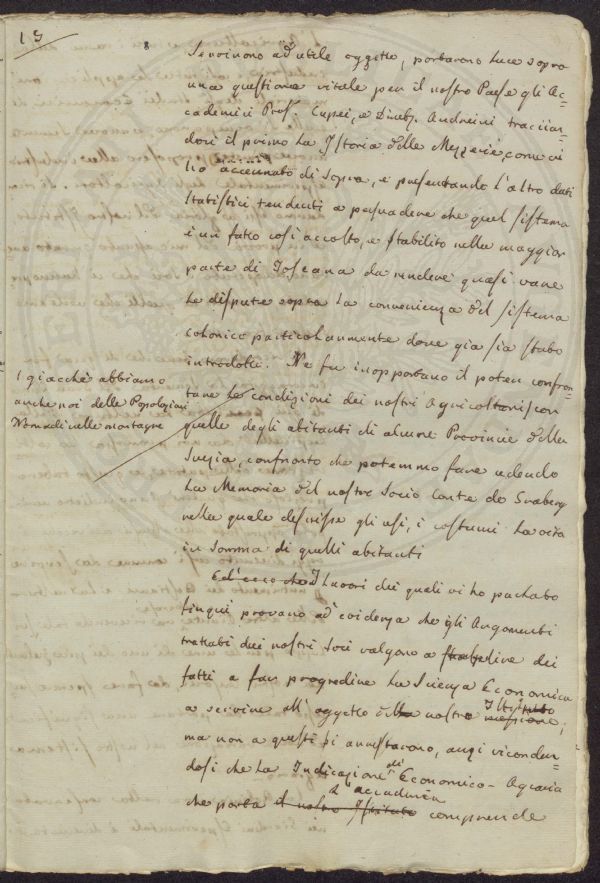 13
8
Servirono ad utile oggetto, portarono luce sopra
una questione vitale per il nostro Paese gli Ac=
cademici Prof. Cuppei, e Andreini traccian=
doci il primo la Istoria delle Mezzerie come vi
ho accennato di sopra, e presentando l'altro dati
Statistici tendenti a persuadere che quel sistema
è un fatto così accolto, e stabilito nella maggior
parte di Toscana da rendere quasi vane
le dispute sopra la convenienza del sistema
colonico particolarmente dove già sia stato
introdotto. Ne fu inopportuno il poter confron=
tare le condizioni dei nostri Agricoltori con
quelle degli abitanti di alcune Provincie della
Svezia, confronto che potemmo fare udendo
la Memoria del nostro Socio Conte de Graberg
nella quale descrisse gli usi, i costumi la vita
in somma di quelli abitanti
( giacchè abbiamo
anche noi delle Popolazioni
Nomadi nelle montagne
Ed ecco che I lavori dei quali vi ho parlato
finqui provano ad evidenza che gli Argomenti
trattati dai nostri Soci valgono a stabilire dei
fatti a far progredire la Scienza Economica
a servire all'oggetto della nostra missione Istituto;
ma non a questi si arrestarono, anzi ricordan=
dosi che la Indicazione di Economico-Agraria
che porta il nostro Istituto l'accademia comprende